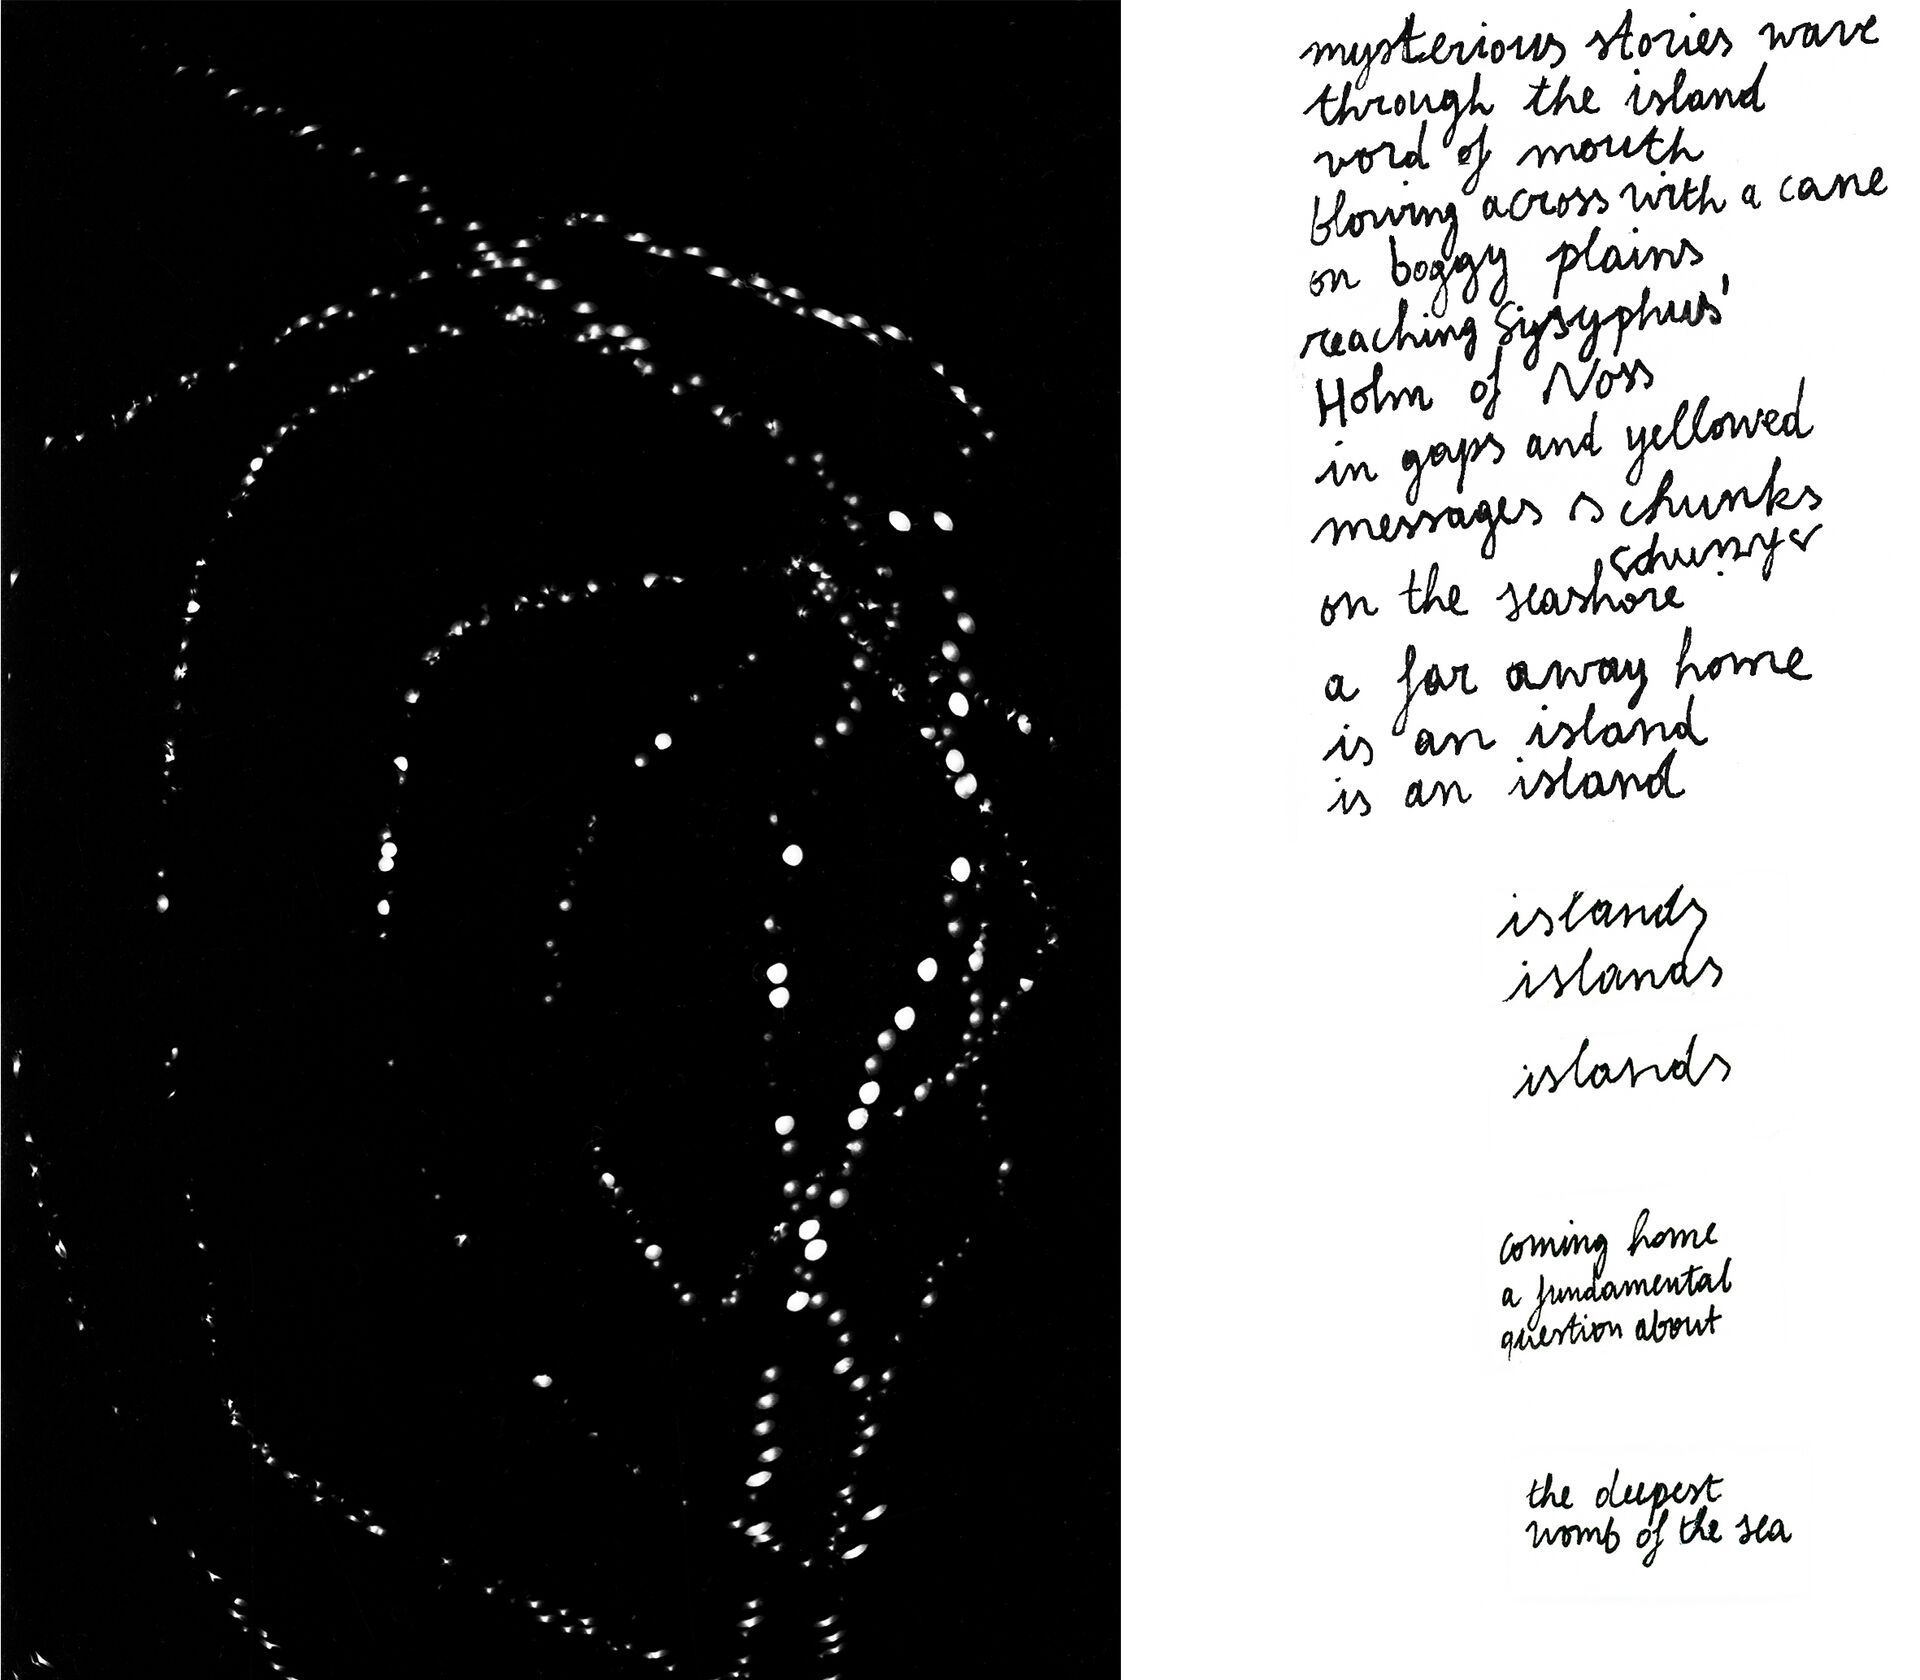 mysterious stories wave
through the island
word of mouth
blowing across with a cane
on boggy plains
reaching Sysyphus'
Holm of Noss
in gaps and yellowed
messages s chunks
on the seashore
a far away home
is an island
is an island
islands
islands
islands
coming home
a fundamental
question about
the deepest
womb of the sea